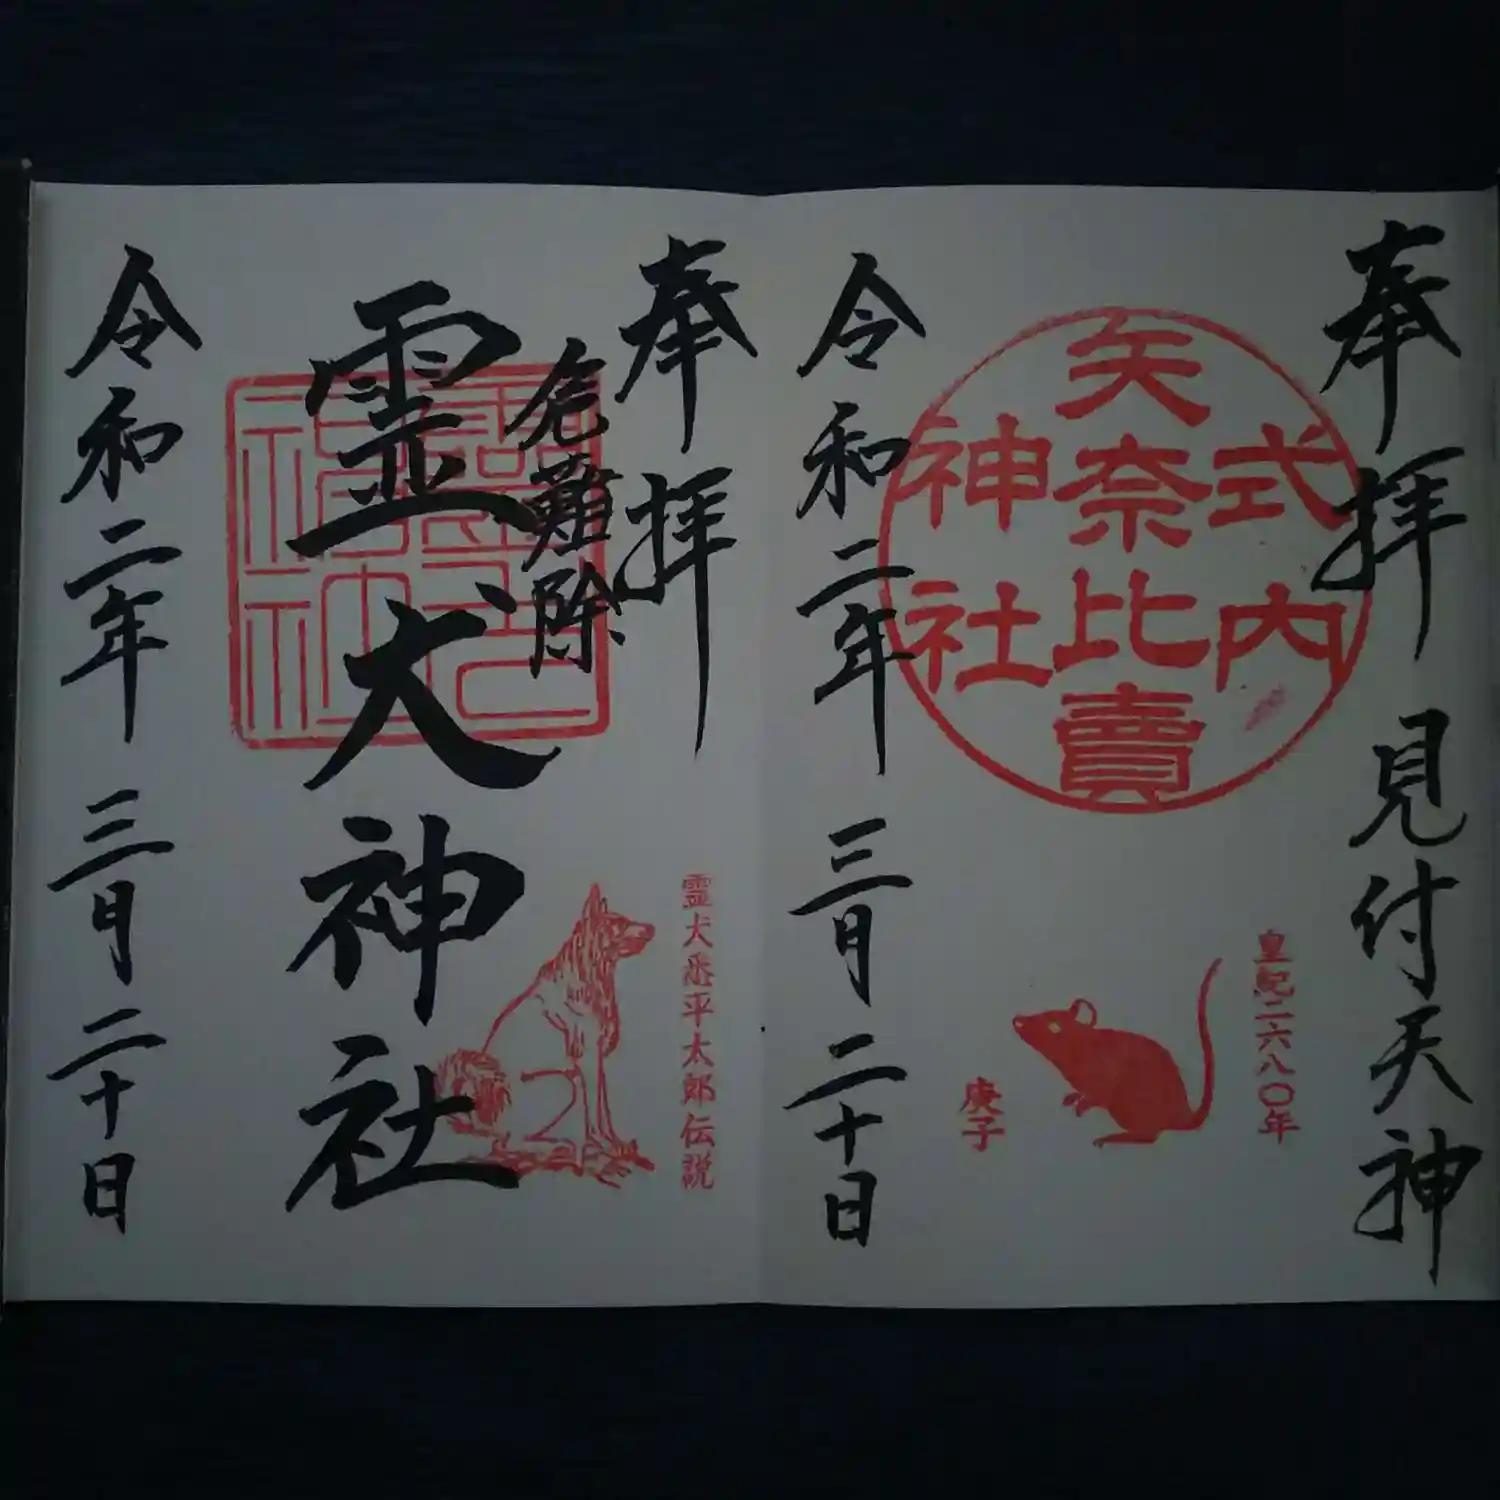 奉拝 見付天神
式内
矢奈比賣
神社
皇紀二六八〇年
庚子
令和二年 三月 二十日
奉拝
危難除
霊犬神社
霊犬悉平太郎伝説
令和二年 三月 二十日